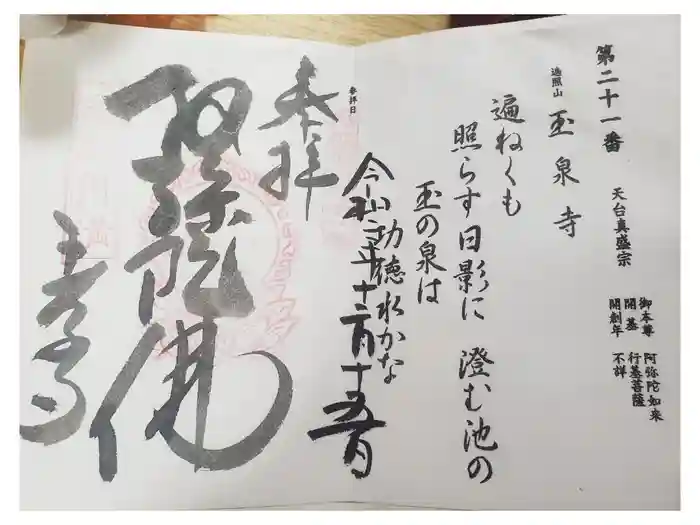 第二十一番
遍照山
玉泉寺
天台真盛宗
御本尊 阿弥陀如来
開基 行基菩薩
開創年 不詳
遍ねくも
照らす日影に 澄む池の
玉の泉は
功徳水かな
参拝日
奉拝
令和 年十二月十五日
阿弥陀佛
玉泉寺